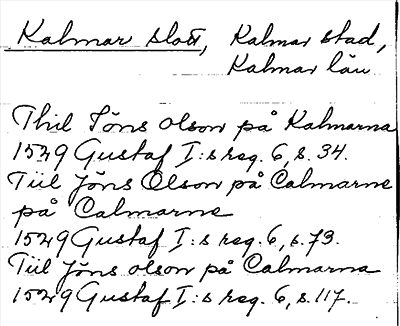 Kalmar slott, Kalmar stad,
Kalmar län
Thil Jöns Olson på Kalmarna
1529 Gustaf I:s reg. 6, s. 34.
Tiil Jöns Olson på Calmarne
på Calmarne
1529 Gustaf I:s reg. 6, s. 73.
Tiil Jöns olson på Calmarna
1529 Gustaf I:s reg. 6, s. 117.